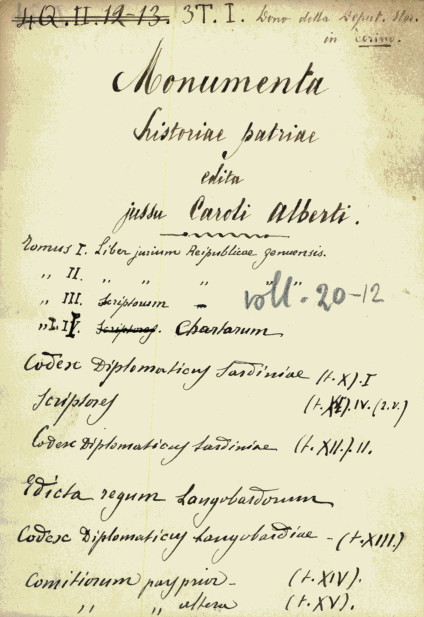 4Q.II.12-13. 3T.I. Dono della Deput. Stor.
in Torino.
Monumenta
historiae patriae
edita
jussu Caroli Alberti.
Tomus I. Liber jurium Reipublicae genuensis.
„ II. „ „ „ „ „
„ III. Scriptorum – voll. 20-12
„ IV. Scriptores Chartarum
Codex Diplomaticus Sardiniae (t. X). I
Scriptores (t. ).IV. (2.v.)
Codex Diplomaticus Sardiniae (t. XII.). II.
Edicta regum Langobardorum
Codex Diplomaticus Langobardiae - (t. XIII.)
Comitiorum pars prior – (t. XIV).
„ „ altera (t. XV).